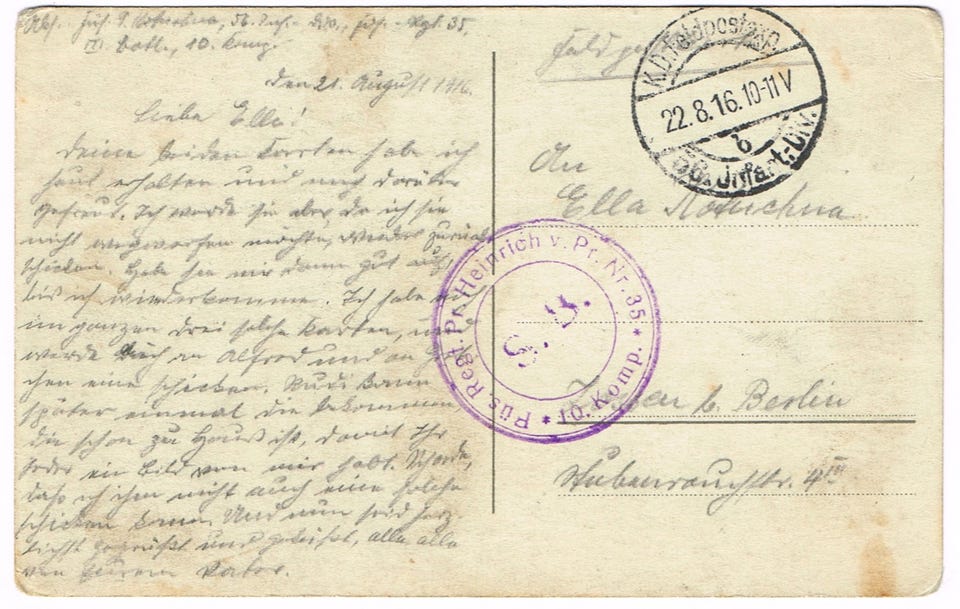 Abs. Füs. 56. Inf.-Div., Füs.-Rgt. 35,
III. Batl., 10. Komp.
den 21. August 1916.
Liebe Elli!
Deine beiden Karten habe ich
heut erhalten und mich darüber
gefreut. Ich werde sie aber da ich sie
nicht wegwerfen möchte, wieder zurück
schicken. Hebe sie mir dann gut auf,
bis ich wiederkomme. Ich habe
im ganzen drei solche Karten, und
werde auch an Alfred und an
chen eine schicken. Rudi kann
später einmal die bekommen
die schon zu Hause ist, damit Ihr
jeder ein Bild von mir habt. Schade,
daß ich ihm nicht auch eine solche
schicken kann. Und nun seid herz
lichst gegrüßt und geküßt, alle alle
von Eurem Vater.
K.D. Feldpostexp.
22.8.16.10-11V
b
56. Infant.-Div.
An
Ella
Füs. Regt. Pr. Heinrich v. Pr. Nr. 35 * 10. Komp. *
S. B.
b. Berlin
Stubenrauchstr. 4